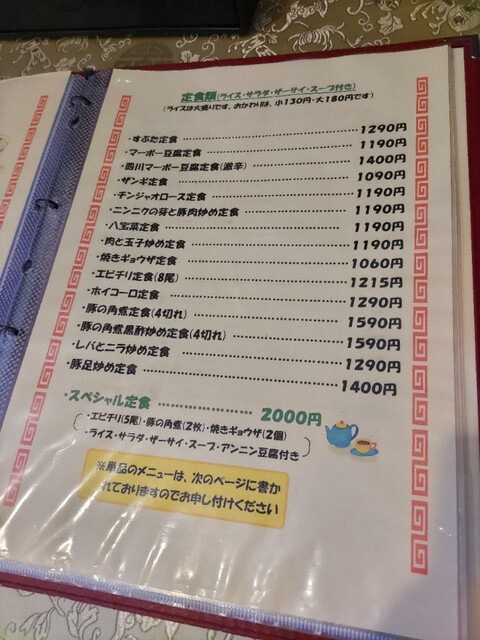 定食類(ライス・サラダ・ザーサイ・スープ付き)
(ライスは大盛りです。おかわりは、小130円・大180円です)
・すぶた定食 1290円
・マーボー豆腐定食 1190円
・四川マーボー豆腐定食(激辛) 1400円
・ザンギ定食 1090円
・チンジャオロース定食 1190円
・ニンニクの芽と豚肉炒め定食 1190円
・八宝菜定食 1190円
・肉と玉子炒め定食 1190円
・焼きギョウザ定食 1060円
・エビチリ定食(8尾) 1215円
・ホイコーロ定食 1290円
・豚の角煮定食(4切れ) 1590円
・豚の角煮黒酢炒め定食(4切れ) 1590円
・レバとニラ炒め定食 1290円
・豚足炒め定食 1400円
・スペシャル定食 2000円
・エビチリ(5尾)・豚の角煮(2枚)・焼きギョウザ(2個)
・ライス・サラダ・ザーサイ・スープ・アンニン豆腐付き
※単品のメニューは、次のページに書か
れておりますのでお申し付けください